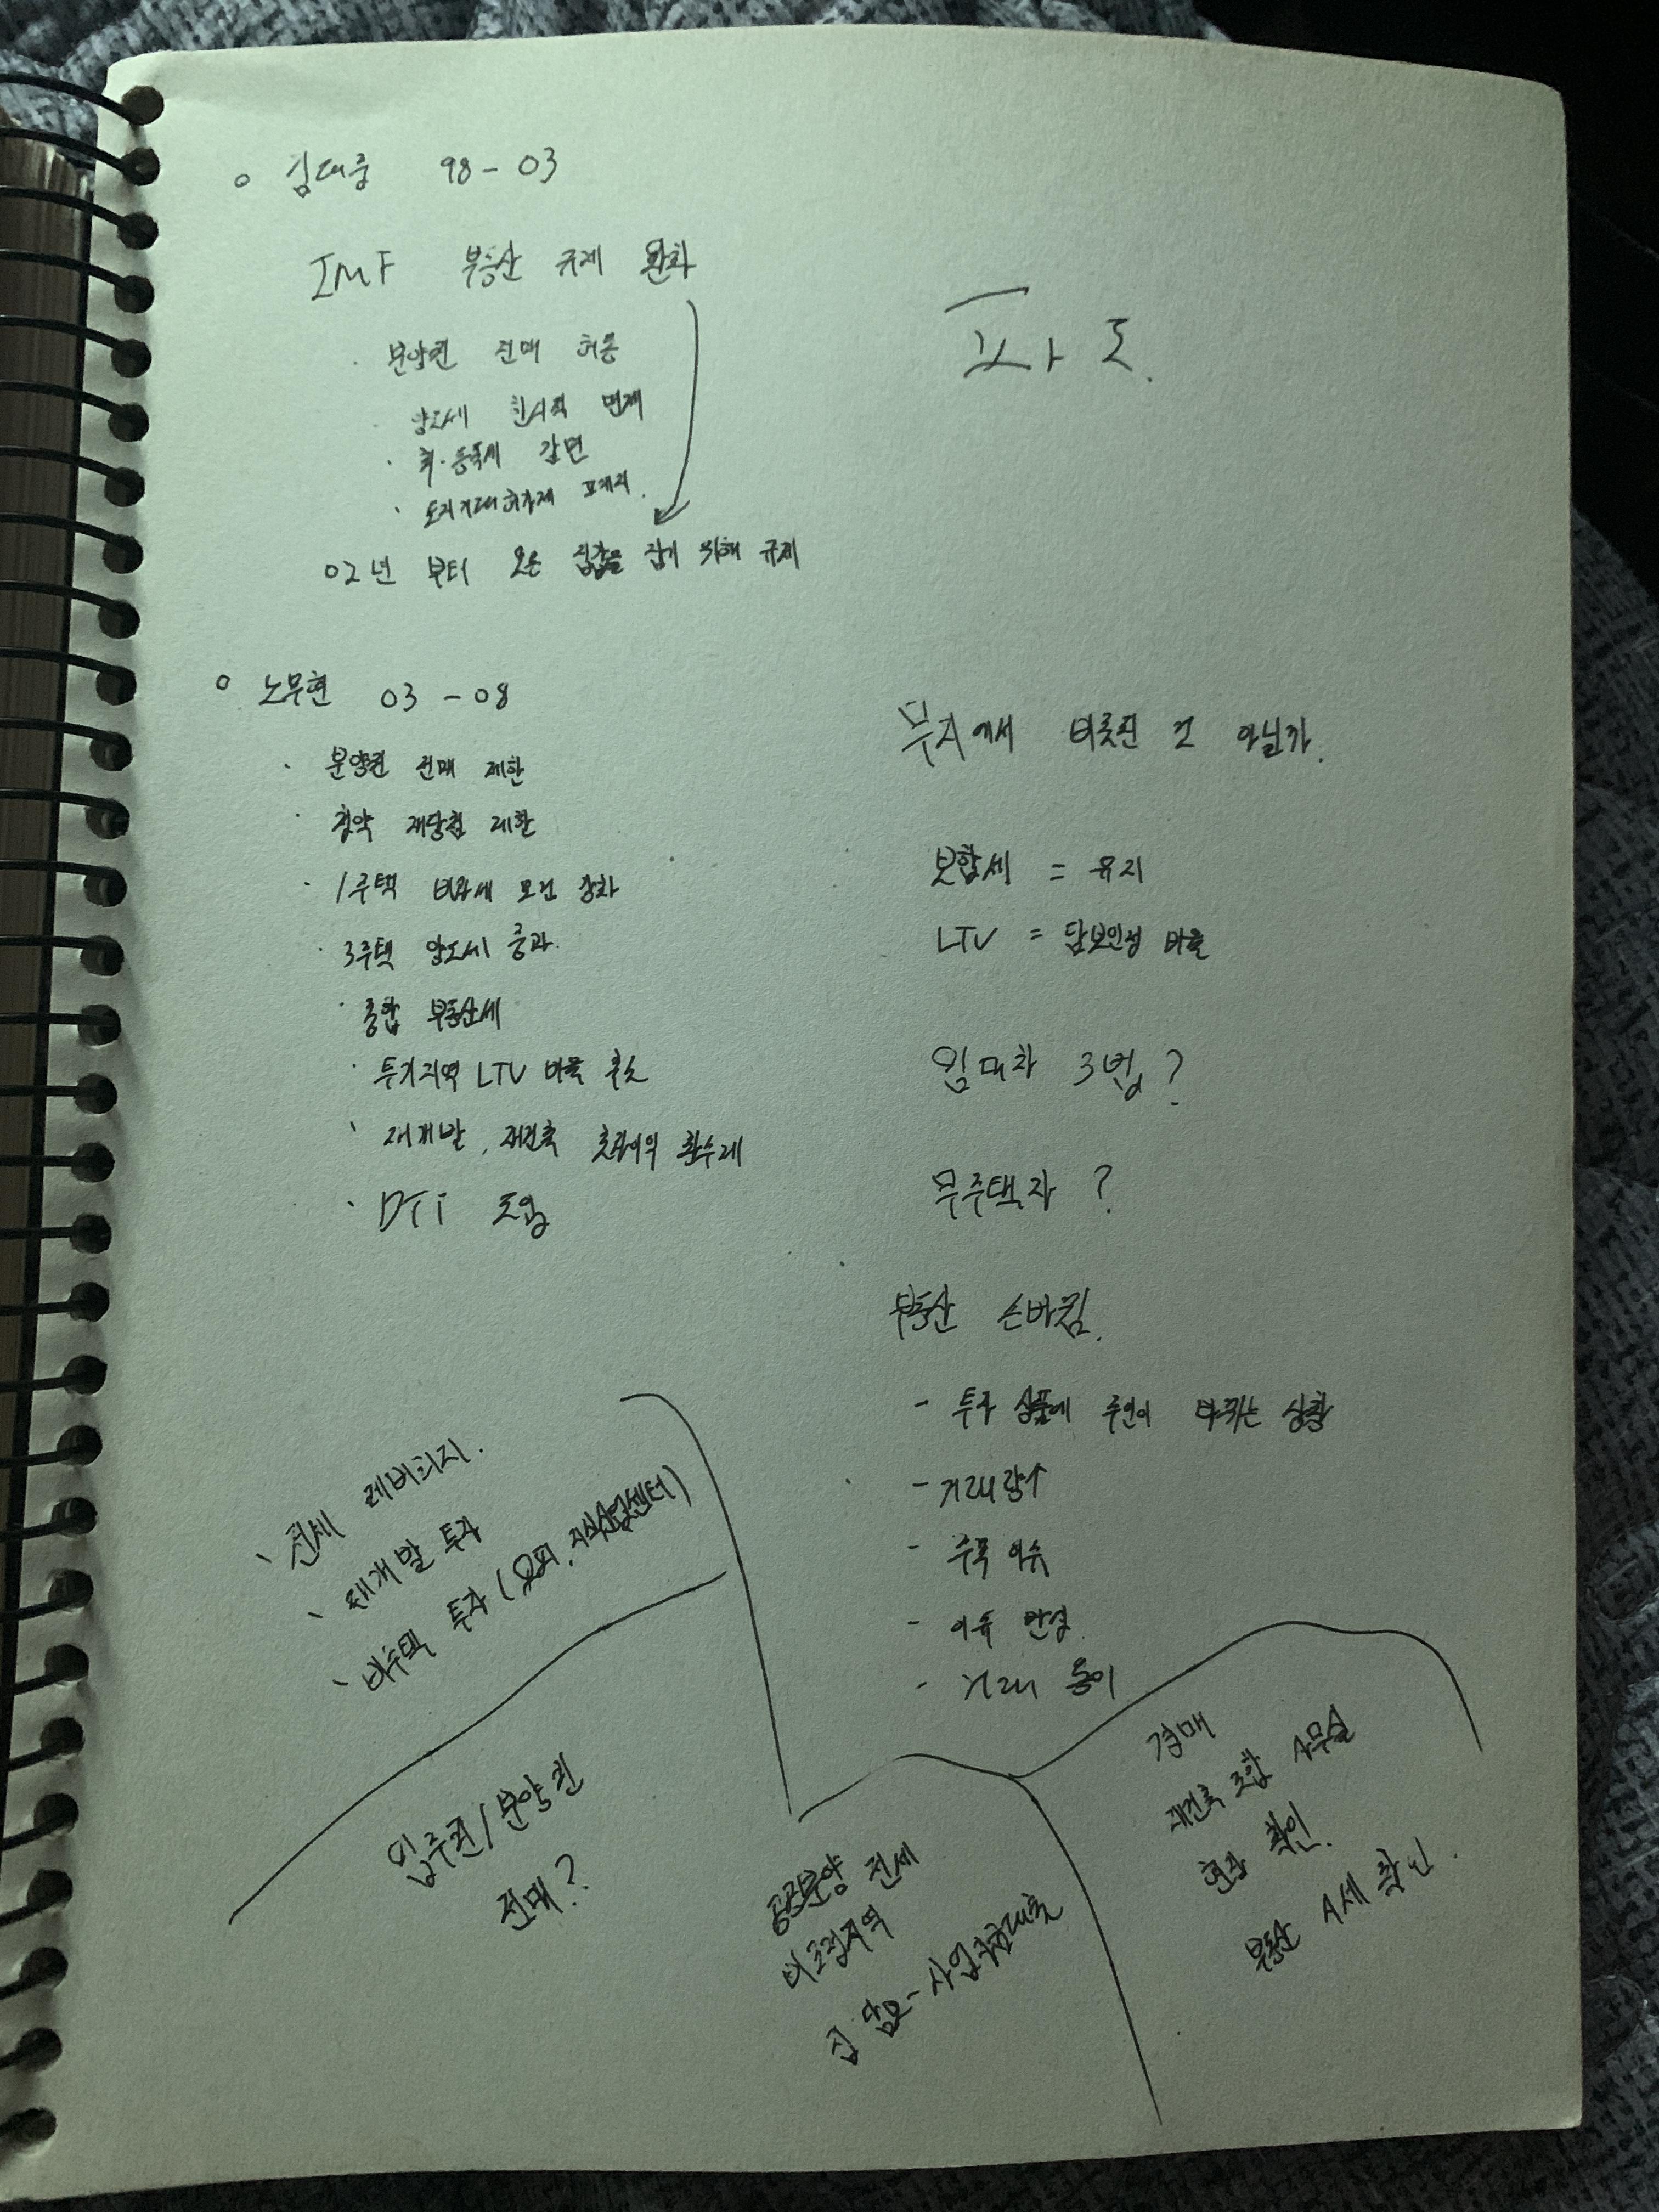 ○ 김대중 98 - 03
IMF 부동산 규제 완화
· 분양권 전매 허용
· 양도세 한시적 면제
· 취·등록세 감면
· 토지거래허가제 폐지.
02년 부터 오른 집값을 잡기 위해 규제
○ 노무현 03 - 08
· 분양권 전매 제한
· 청약 재당첨 제한
· 1주택 비과세 요건 강화
· 3주택 양도세 중과.
· 종합 부동산세
· 투기지역 LTV 비율 축소
· 재개발, 재건축 초과이익 환수제
· DTi 도입
파도.
무지에서 비롯된 건 아닐까.
보합세 = 유지
LTV = 담보인정 비율
임대차 3법?
무주택자?
부동산 손바뀜.
- 투자 상품에 주인이 바뀌는 상황
- 거래량↑
- 수목 이슈
- 이유 반영
- 거래 용이
· 전세 레버리지.
· 재개발 투자
· 비주택 투자 (오피, 지식산업센터)
입주권/분양권
전매?
공공분양 전세
비조정지역
집 담보 - 사업자금대출
경매
재건축 조합 사무실
현장 확인.
부동산 시세 확인.